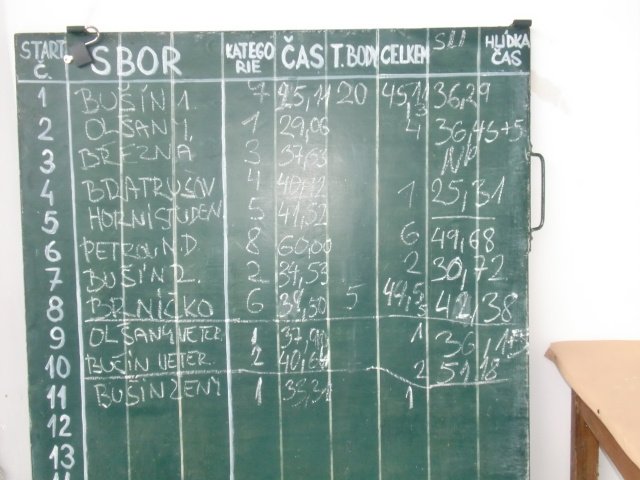 START Č. SBOR KATEGO RIE ČAS T.BODY CELKEM HLÍDKA ČAS
1 BUŠÍN 1. 7 25,11 20 45,11 36,29
2 OLŠANY 1. 1 29,06 4 36,45+5
3 BŘEZNÁ 3 37,63 NP
4 BDRATRUŠOV 4 1 25,31
5 HORNÍ STUDEN 5 49,52
6 PETROV N.D. 8 60,00 6 49,68
7 BUŠÍN 2. 2 34,53 2 30,72
8 BRNÍČKO 6 39,50 5 42,38
9 OLŠANY VETER. 1 1
10 BUŠÍN VETER. 2 2 51,18
11 BUŠÍN ŽENY 1 1
12
13